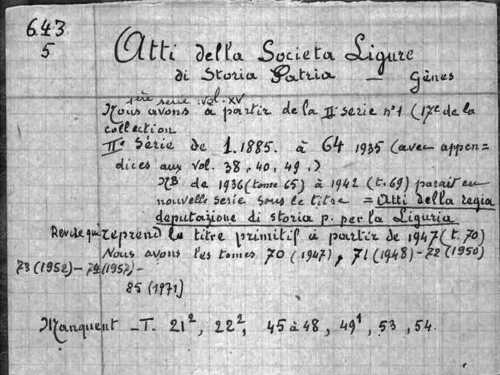 643
5
Atti della Societa Ligure
di Storia Patria — Gênes
1ère serie vol. XV
Nous avons à partir de la II serie n°1 (17e de la
collection
IIe Série de 1.1885. à 64 1935 (avec appen=
dices aux vol. 38, 40, 49.)
NB de 1936 (tome 65) à 1942 (t. 69) parait en
nouvelle serie sous le titre = Atti della regia
deputazione di storia p. per la Liguria
Revue qui reprend le titre primitif à partir de 1947 (t. 70)
Nous avons les tomes 70 (1947), 71 (1948) - 72 (1950)
73 (1952) - 74 (1957) -
85 (1971)
Manquent - T. 21², 22², 45 à 48, 49¹, 53, 54.